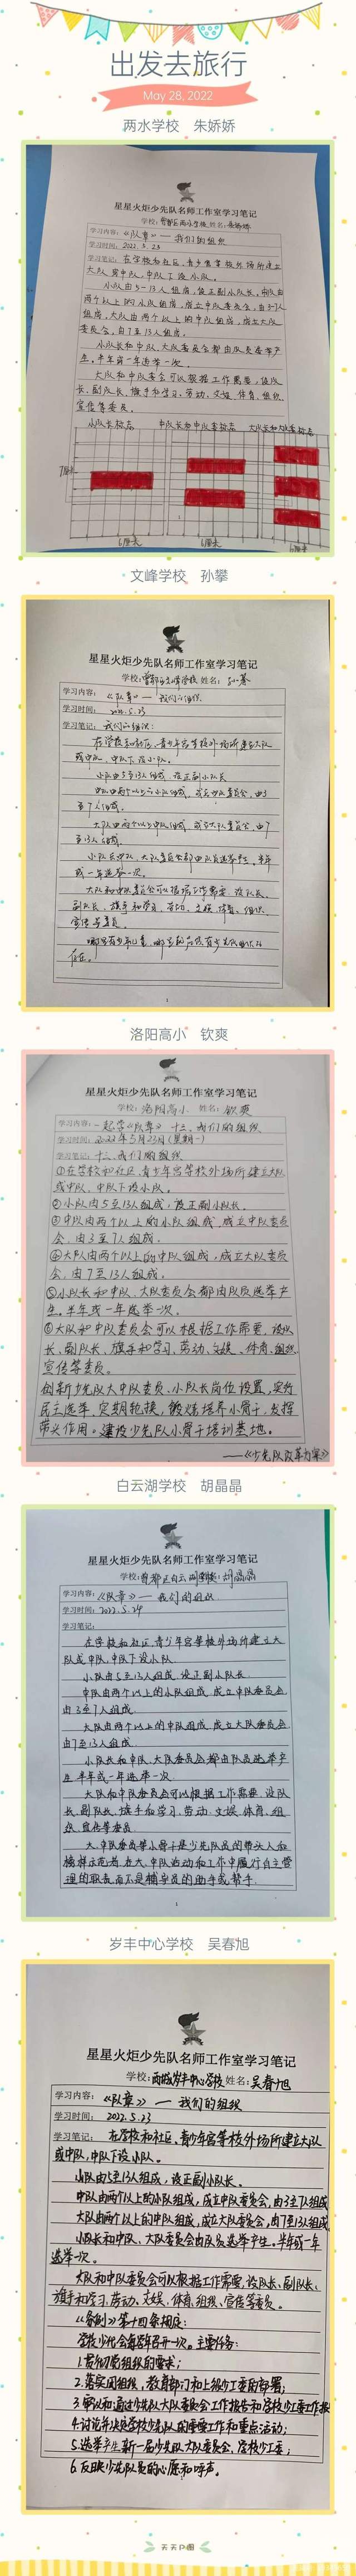 出发去旅行
May 28, 2022
两水学校 朱娇娇
星星火炬少先队名师工作室学习笔记
学校:曾都区两水学校 姓名:朱娇娇
学习内容:《队章》— 我们的组织
学习时间:2022.5.23
学习笔记:在学校和社区、青少年宫等校外场所建立
大队或中队,中队下设小队。
小队由5-13人组成,设正副小队长。中队由
两个以上的小队组成,成立中队委员会,由3-7人
组成。大队由两个以上的中队组成,成立大队
委员会,由7至13人组成。
小队长和中队、大队委员会都由队员选举产
生。半年或一年选举一次。
大队和中队委会可以根据工作需要,设队
长、副队长、旗手和学习、劳动、文娱、体育、组织、
宣传等委员。
小队长标志 中队长和中队委标志 大队长和大队委标志
7厘米
6厘米 6厘米 6厘米
文峰学校 孙攀
星星火炬少先队名师工作室学习笔记
学校:曾都区文峰学校 姓名:孙攀
学习内容:《队章》— 我们的组织
学习时间:2022.5.23
学习笔记:我们的组织:
在学校和社区、青少年宫等校外场所建立大队
或中队,中队下设小队。
小队由5至13人组成,设正副小队长
中队由两个以上的小队组成,成立中队委员会,由3
至7人组成。
大队由两个以上中队组成,成立大队委员会,由7
至13人组成。
小队长和中队、大队委员会都由队员选举产生。半年
或一年选举一次。
大队和中队委员会可以根据工作需要,设队长、
副队长、旗手和学习、劳动、文娱、体育、组织、
宣传等委员。
哪里有少年儿童,哪里就应该有少先队组织的
存在。
1
洛阳高小 钦爽
星星火炬少先队名师工作室学习笔记
学校:洛阳高小 姓名:钦爽
学习内容:一起学《队章》十三、我们的组织
学习时间:2022年5月23日(星期一)
学习笔记:十三、我们的组织
①在学校和社区、青少年宫等校外场所建立大队
或中队,中队下设小队。
②小队由5至13人组成,设正副小队长。
③中队由两个以上的小队组成,成立中队委员
会,由3至7人组成。
④大队由两个以上的中队组成,成立大队委员
会,由7至13人组成。
⑤小队长和中队、大队委员会都由队员选举产
生。半年或一年选举一次。
⑥大队和中队委员会可以根据工作需要,设队
长、副队长、旗手和学习、劳动、文娱、体育、组织、
宣传等委员。
创新少先队大中队委员、小队长岗位设置,实行
民主选举、定期轮换,锻炼培养小骨干,发挥
带头作用。建设少先队小骨干培训基地。
——《少先队改革方案》
白云湖学校 胡晶晶
星星火炬少先队名师工作室学习笔记
学校:曾都区白云湖学校 胡晶晶
学习内容:《队章》— 我们的组织
学习时间:2022.5.24
学习笔记:
在学校和社区、青少年宫等校外场所建立大
队或中队,中队下设小队。
小队由5至13人组成,设正副小队长。
中队由两个以上的小队组成,成立中队委员会,
由3至7人组成。
大队由两个以上的中队组成,成立大队委员会,
由7至13人组成。
小队长和中队、大队委员会都由队员选举产
生,半年或一年选举一次。
大队和中队委员会可以根据工作需要,设队
长、副队长、旗手和学习、劳动、文娱、体育、组
织、宣传等委员。
大、中队委员等小骨干是少先队员的带头人和
榜样示范者,在大、中队活动和工作中履行自主管
理的职责,而不是辅导员的助手或帮手。
1
岁丰中心学校 吴春旭
星星火炬少先队名师工作室学习笔记
学校:西城岁丰中心学校 姓名:吴春旭
学习内容:《队章》— 我们的组织
学习时间:2022.5.23
学习笔记:在学校和社区、青少年宫等校外场所建立大队
或中队,中队下设小队。
小队由5至13人组成,设正副小队长。
中队由两个以上的小队组成,成立中队委员会,由3至7人组成
大队由两个以上的中队组成,成立大队委员会,由7至13人组成
小队长和中队、大队委员会由队员选举产生。半年或一年
选举一次。
大队和中队委员会可以根据工作需要,设队长、副队长、
旗手和学习、劳动、文娱、体育、组织、宣传等委员。
《条例》第十四条规定:
学校少代会每学年召开一次。主要任务:
1.贯彻党组织的要求;
2.落实团组织、教育部门和上级少工委的部署;
3.审议和通过少先队大队委员会工作报告和学校少工委工作报
4.讨论并决定学校少先队的重要工作和重点活动;
5.选举产生新一届少先队大队委员会、学校少工委;
6.反映少先队员的心愿和呼声。
天天P图